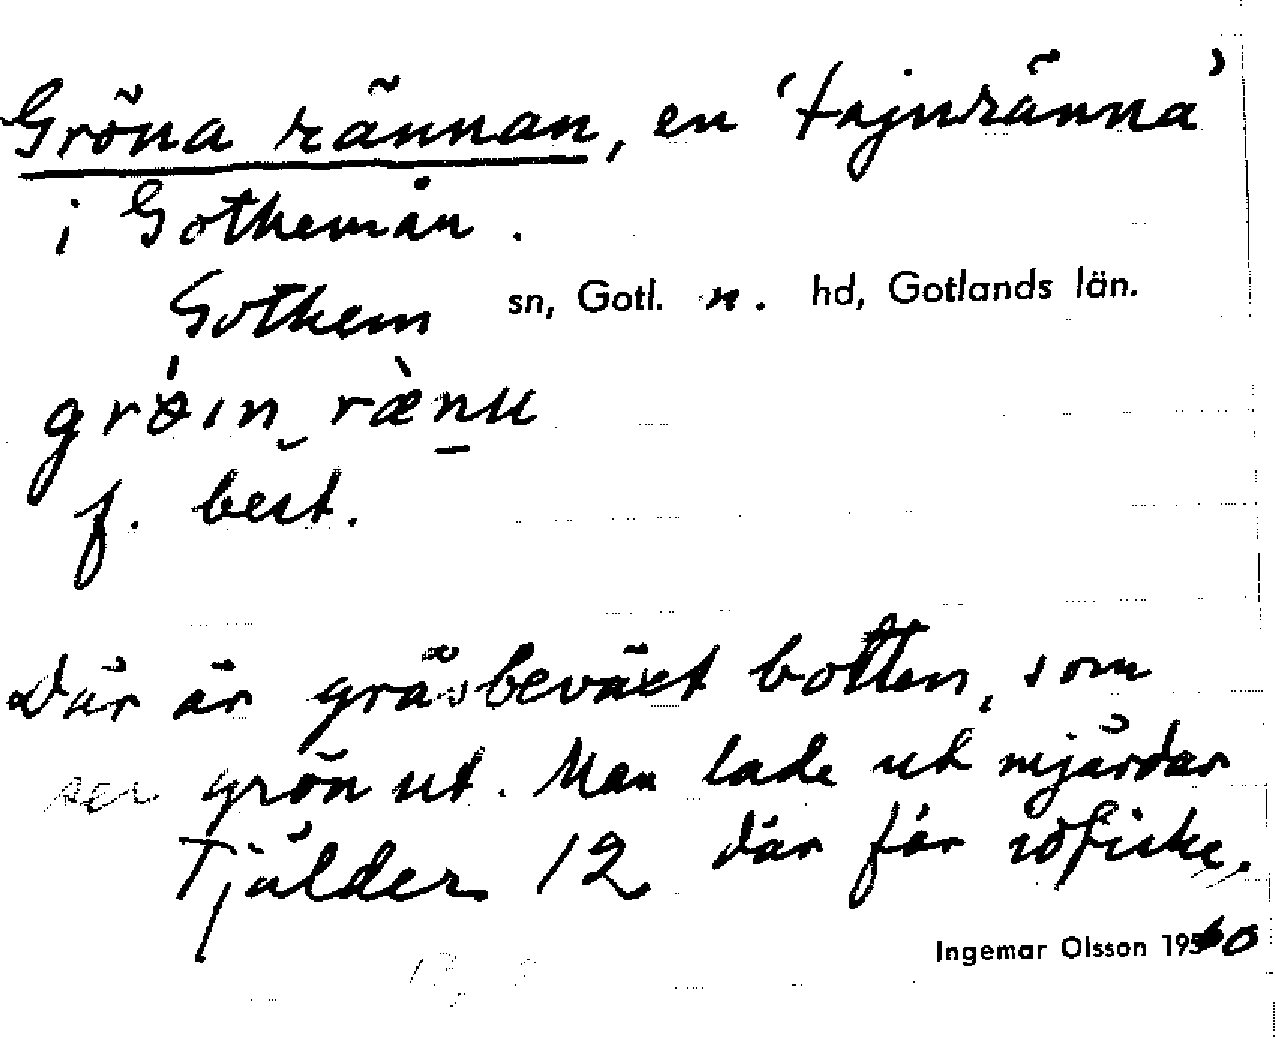 Gröna rännan, en 'tajnränna'
i Gothemån.
Gothem sn, Gotl. n. hd, Gotlands län.
f. best.
Där är gräsbeväxt botten, som
ser grön ut. Man lade ut mjärdar
Tjälder 12 där för idfiske.
Ingemar Olsson 1960